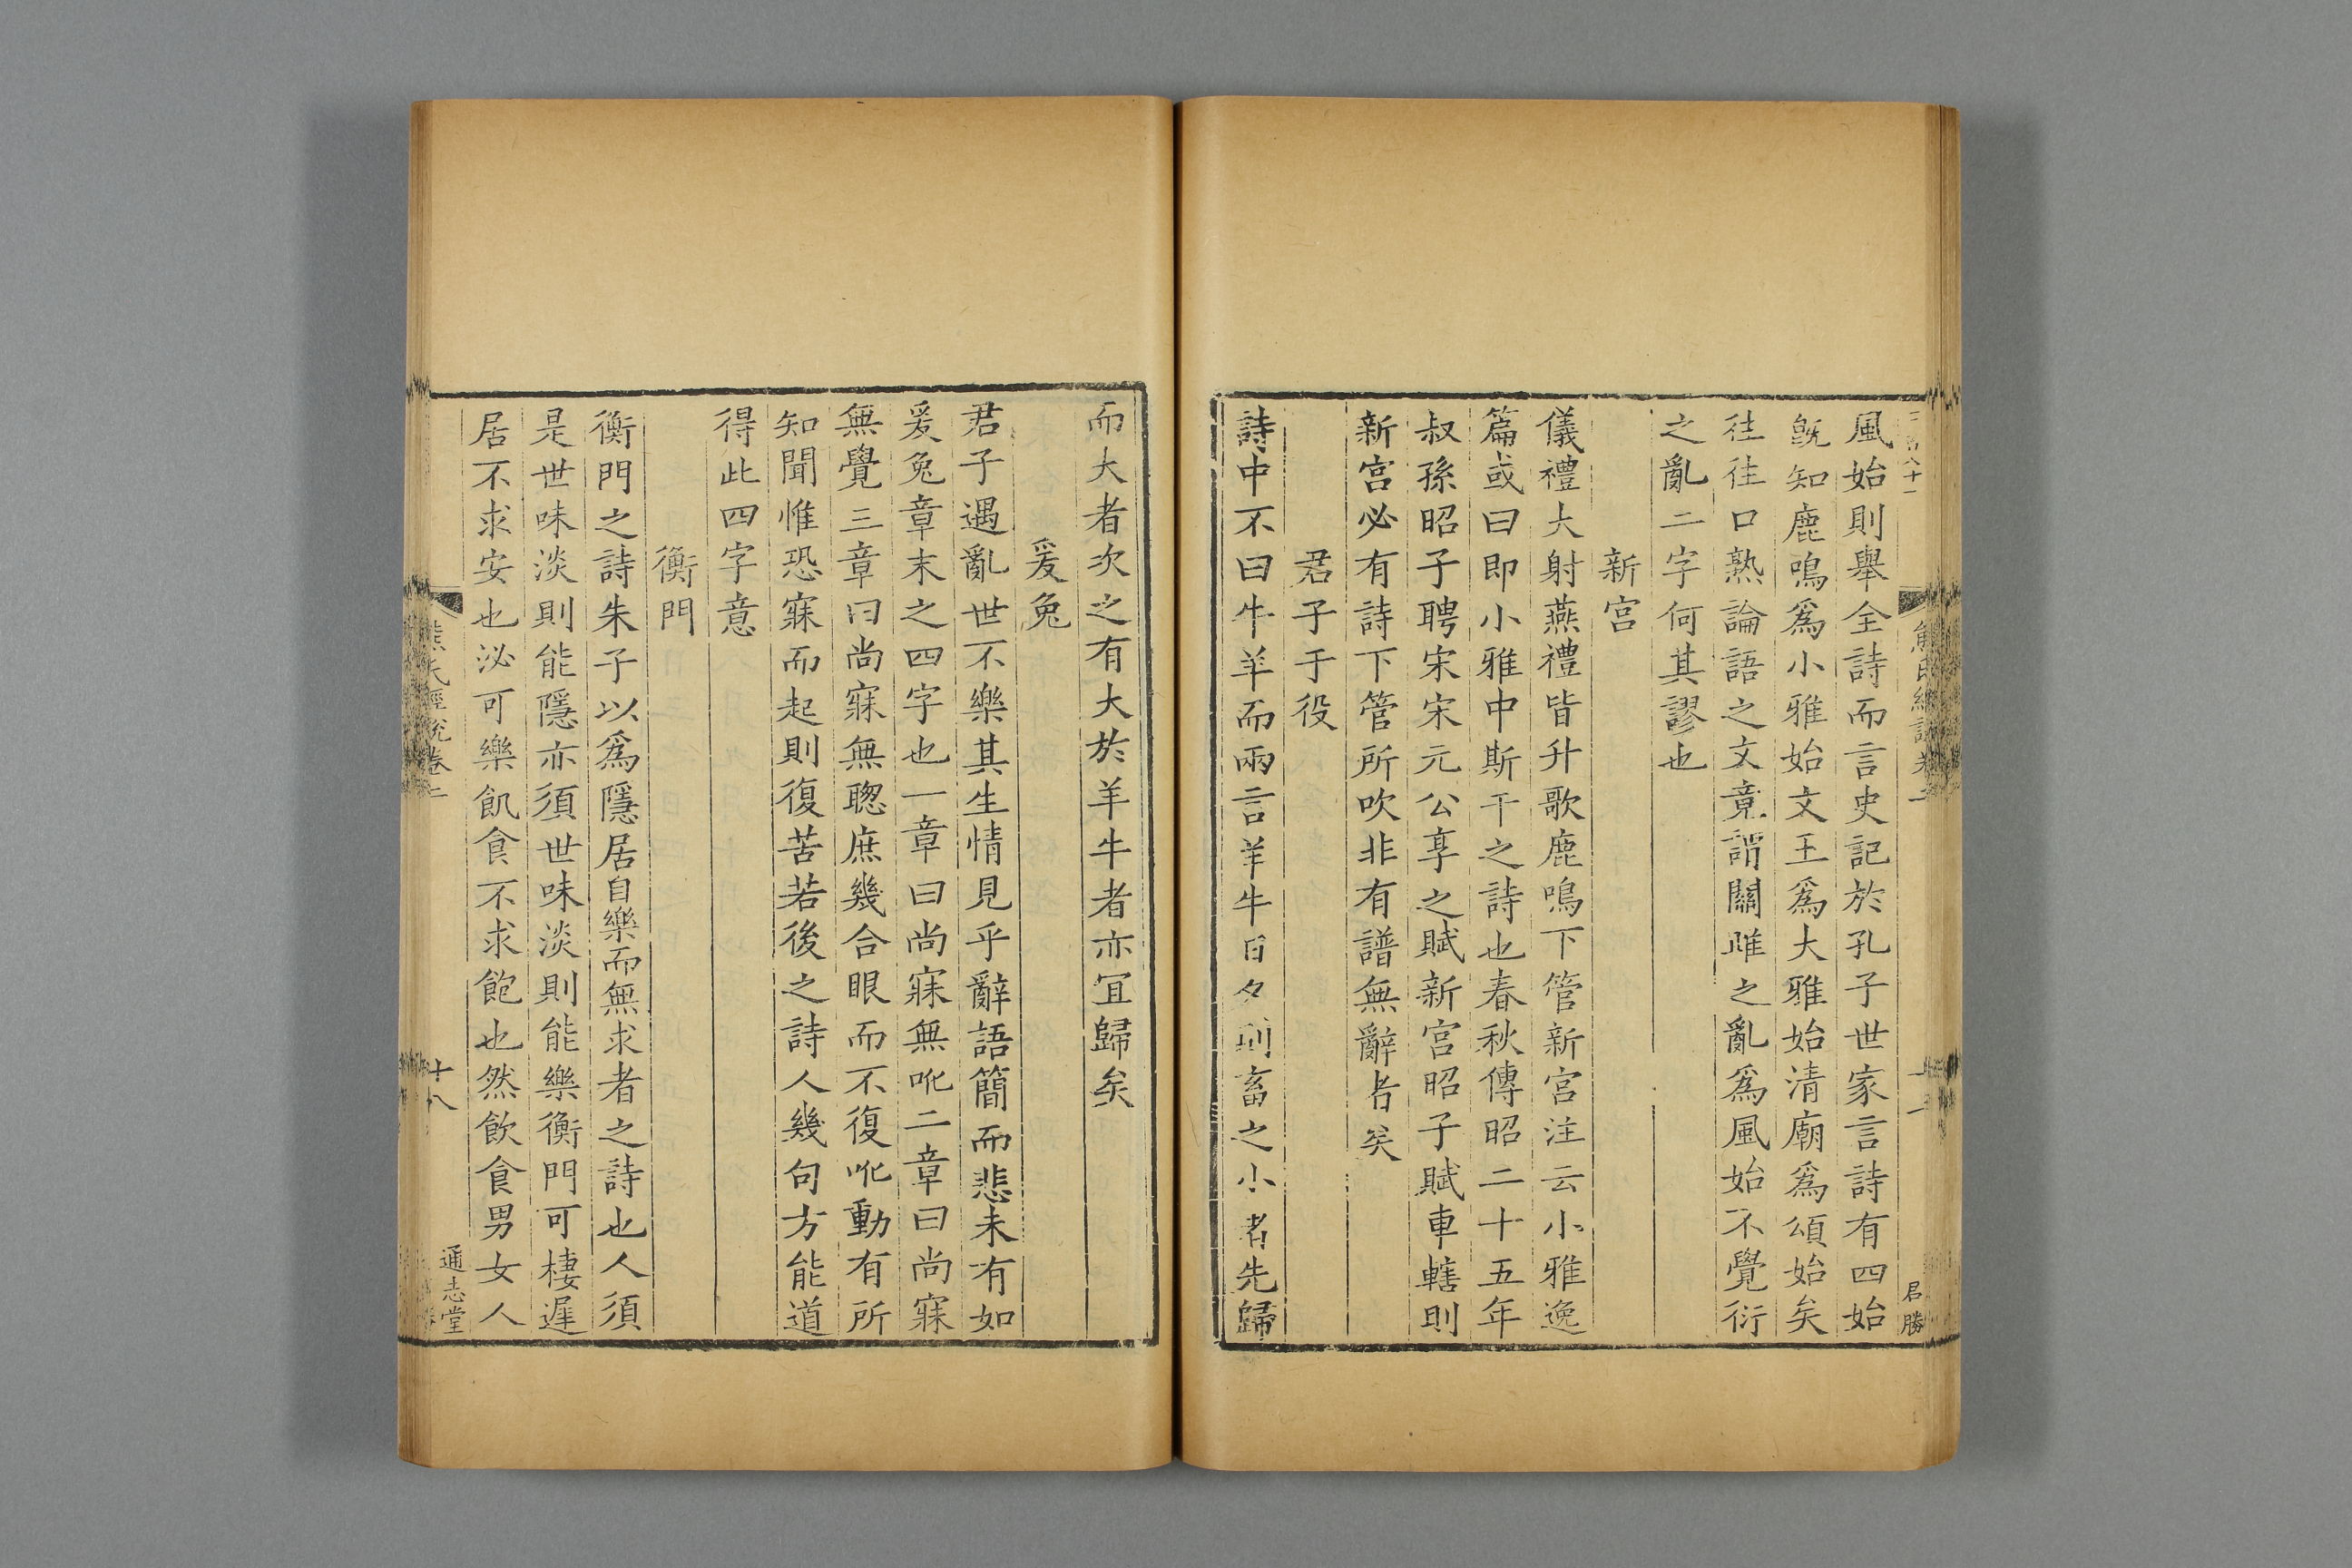 風始則舉全詩而言史記於孔子世家言詩有四始
旣知鹿鳴爲小雅始文王爲大雅始清廟爲頌始矣
徃徃口熟論語之文竟謂關雎之亂爲風始不覺衍
之亂二字何其謬也
新宮
儀禮大射燕禮皆升歌鹿鳴下管新宮注云小雅逸
篇或曰即小雅中斯干之詩也春秋傳昭二十五年
叔孫昭子聘宋宋元公享之賦新宮昭子賦車轄則
新宮必有詩下管所吹非有譜無辭者矣
君子于役
詩中不曰牛羊而兩言羊牛日夕則畜之小者先歸
而大者次之有大於羊牛者亦宜歸矣
爰兔
君子遇亂世不樂其生情見乎辭語簡而悲未有如
爰兔章末之四字也一章曰尚寐無吪二章曰尚寐
無覺三章曰尚寐無聰庶幾合眼而不復吪動有所
知聞惟恐寐而起則復苦若後之詩人幾句方能道
得此四字意
衡門
衡門之詩朱子以爲隱居自樂而無求者之詩也人須
是世味淡則能隱亦須世味淡則能樂衡門可棲遲
居不求安也泌可樂飢食不求飽也然飲食男女人
熊氏經說卷二
十八
通志堂